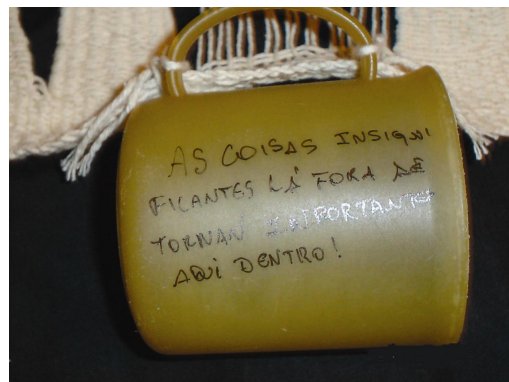 AS COISAS INSIGNI
FICANTES LÁ FORA SE
TORNAN IMPORTANTE
AQUI DENTRO!